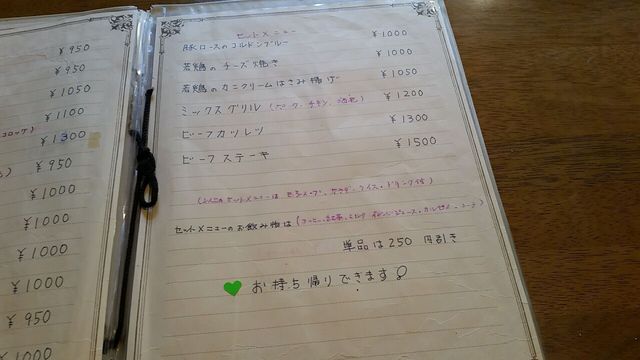 ¥950
¥950
¥1050
¥1100
コロッケ) ¥1300
¥950
¥1000
¥1000
¥1000
¥1000
¥950
¥1000
セットメニュー
豚ロースのコルドンブルー ¥1000
若鶏のチーズ焼き ¥1000
若鶏のカニクリームはさみ揚げ ¥1050
ミックスグリル (ポーク、チキン、海老) ¥1200
ビーフカツレツ ¥1300
ビーフステーキ ¥1500
セットメニューは スープ、サラダ、ライス、ドリンク付)
セットメニューのお飲み物は (コーヒー、紅茶、ミルク
単品は250円引き
お持ち帰りできます